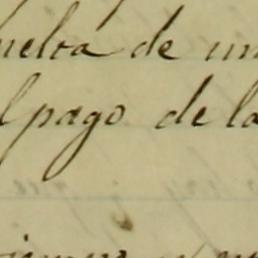 uelta de un
l pago de la